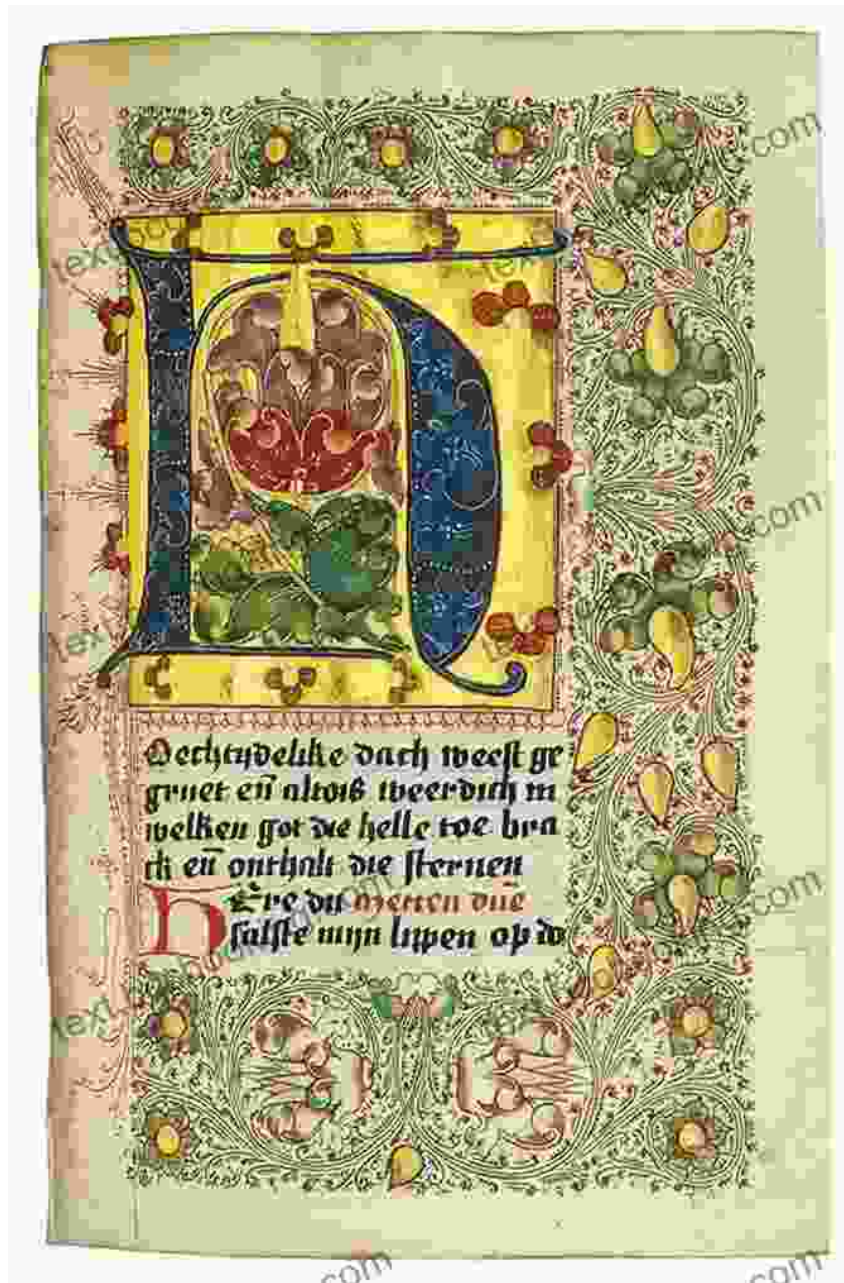 HOechtijdelike dach weest ge
gruet en̄ altois weerdich in
welken got die helle toe bra
ck en̄ onthalt die sternen
HEre du metten
salste mijn lippen op do